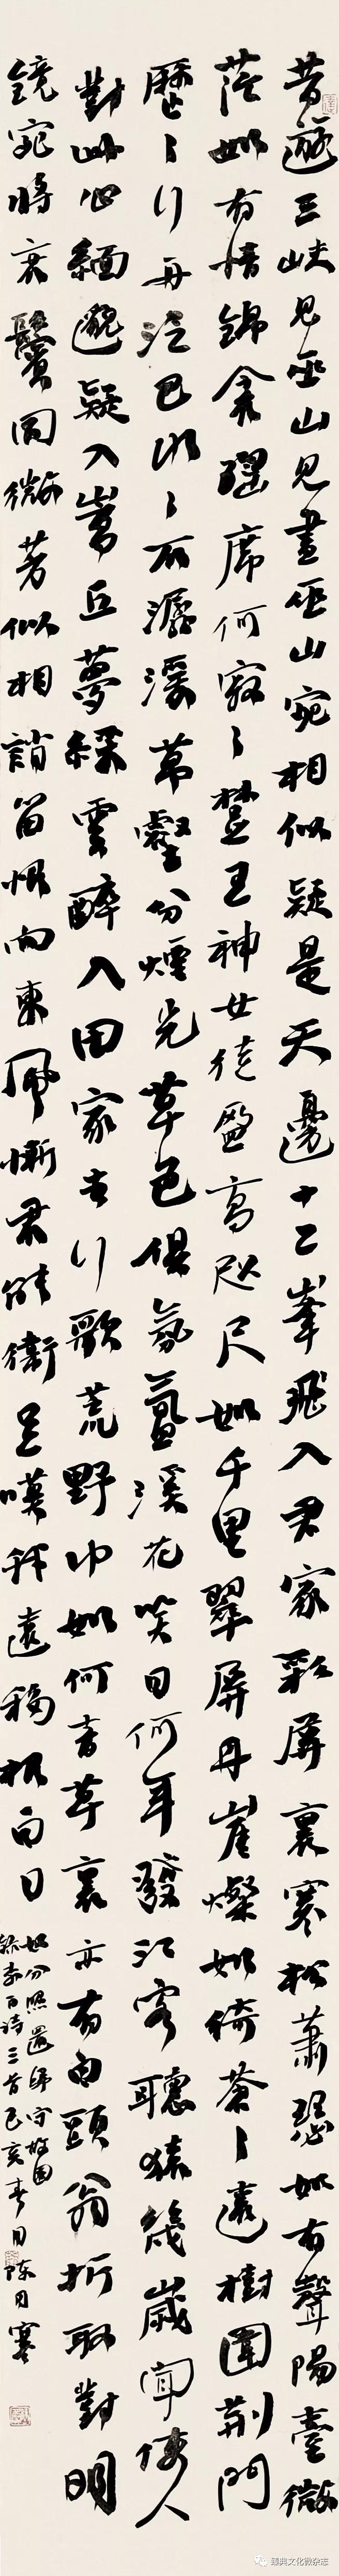 昔遊三峽見巫山見畫巫山宛相似疑是天邊十二峯飛入君家彩屏裏寒松蕭瑟如有聲陽臺微
茫如有情錦衾瑤席何寂〻楚王神女徒盈高咫尺如千里翠屏丹崖燦如綺蒼〻遠樹圍荊門
歷〻行舟泛巴水〻石潺湲萬壑分煙光草色俱氛氳溪花笑日何年發江客聽猿幾歲聞使人
對此心緬邈疑入嵩丘夢綵雲醉入田家去行歌荒野中如何青草裏亦有白頭翁折取對明
鏡宛將衰鬢同微芳似相誚留恨向東風慚君能衛足嘆我遠移根白日
如分照還歸守故園
錄李白詩三首己亥春月陳
臻典文化微杂志